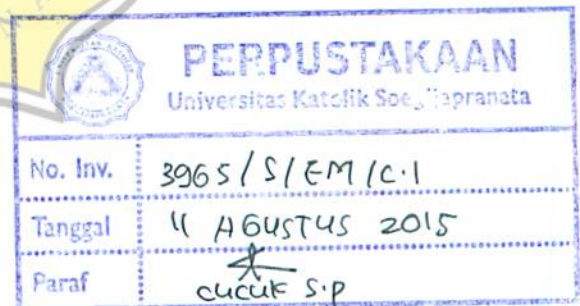 PERPUSTAKAAN
Universitas Katolik
No. Inv. 3965/S/EM/C.1
Tanggal 11 AGUSTUS 2015
Paraf cucuk S.p